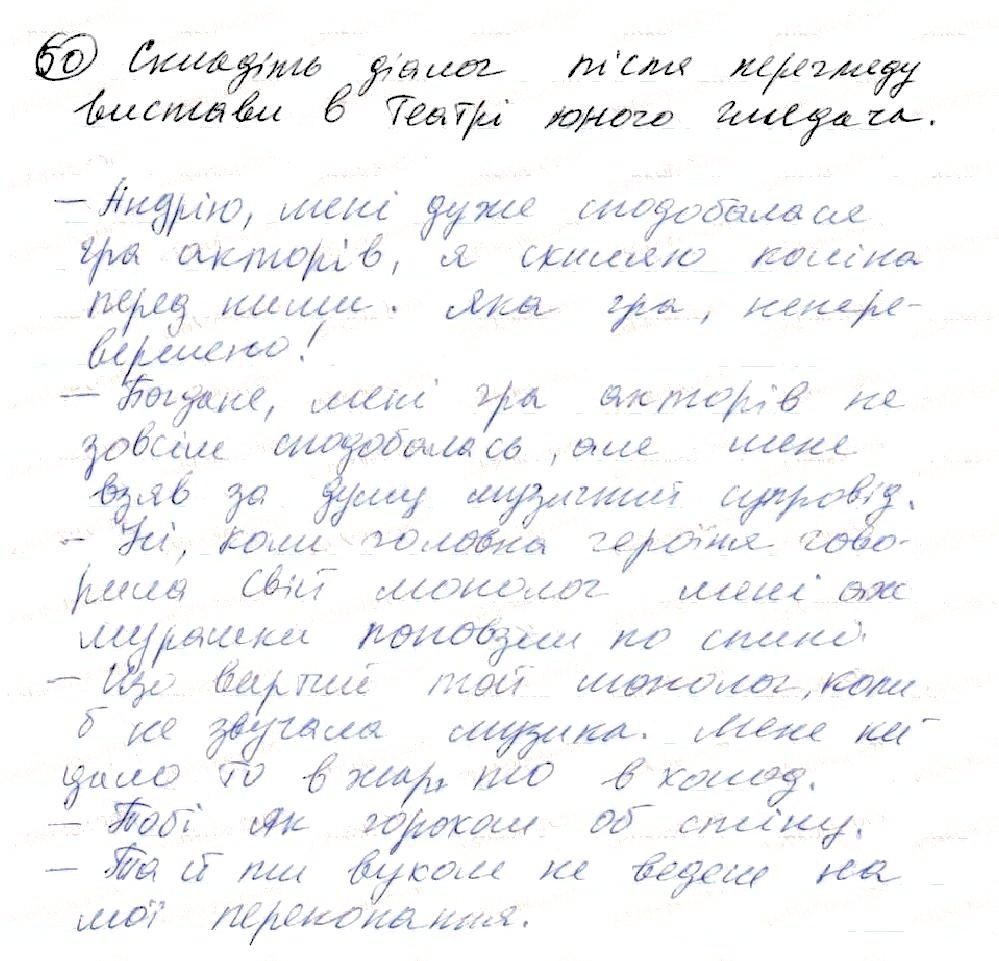 50 Складіть діалог після перегляду
вистави в Театрі юного глядача.
— Андрію, мені дуже сподобалася
гра акторів, я схиляю коліна
перед ними. Яка гра, непере-
вершено!
— Богдане, мені гра акторів не
зовсім сподобалась, але мене
взяв за душу музичний супровід.
— Ні, коли головна героїня гово-
рила свій монолог мені аж
мурашки поповзли по спині.
— Що вартий той монолог, коли
б не звучала музика. Мене ки
дало то в жар, то в холод.
— Тобі як горохом об стіну.
— Та й ти вухом не ведеш на
мої переконання.